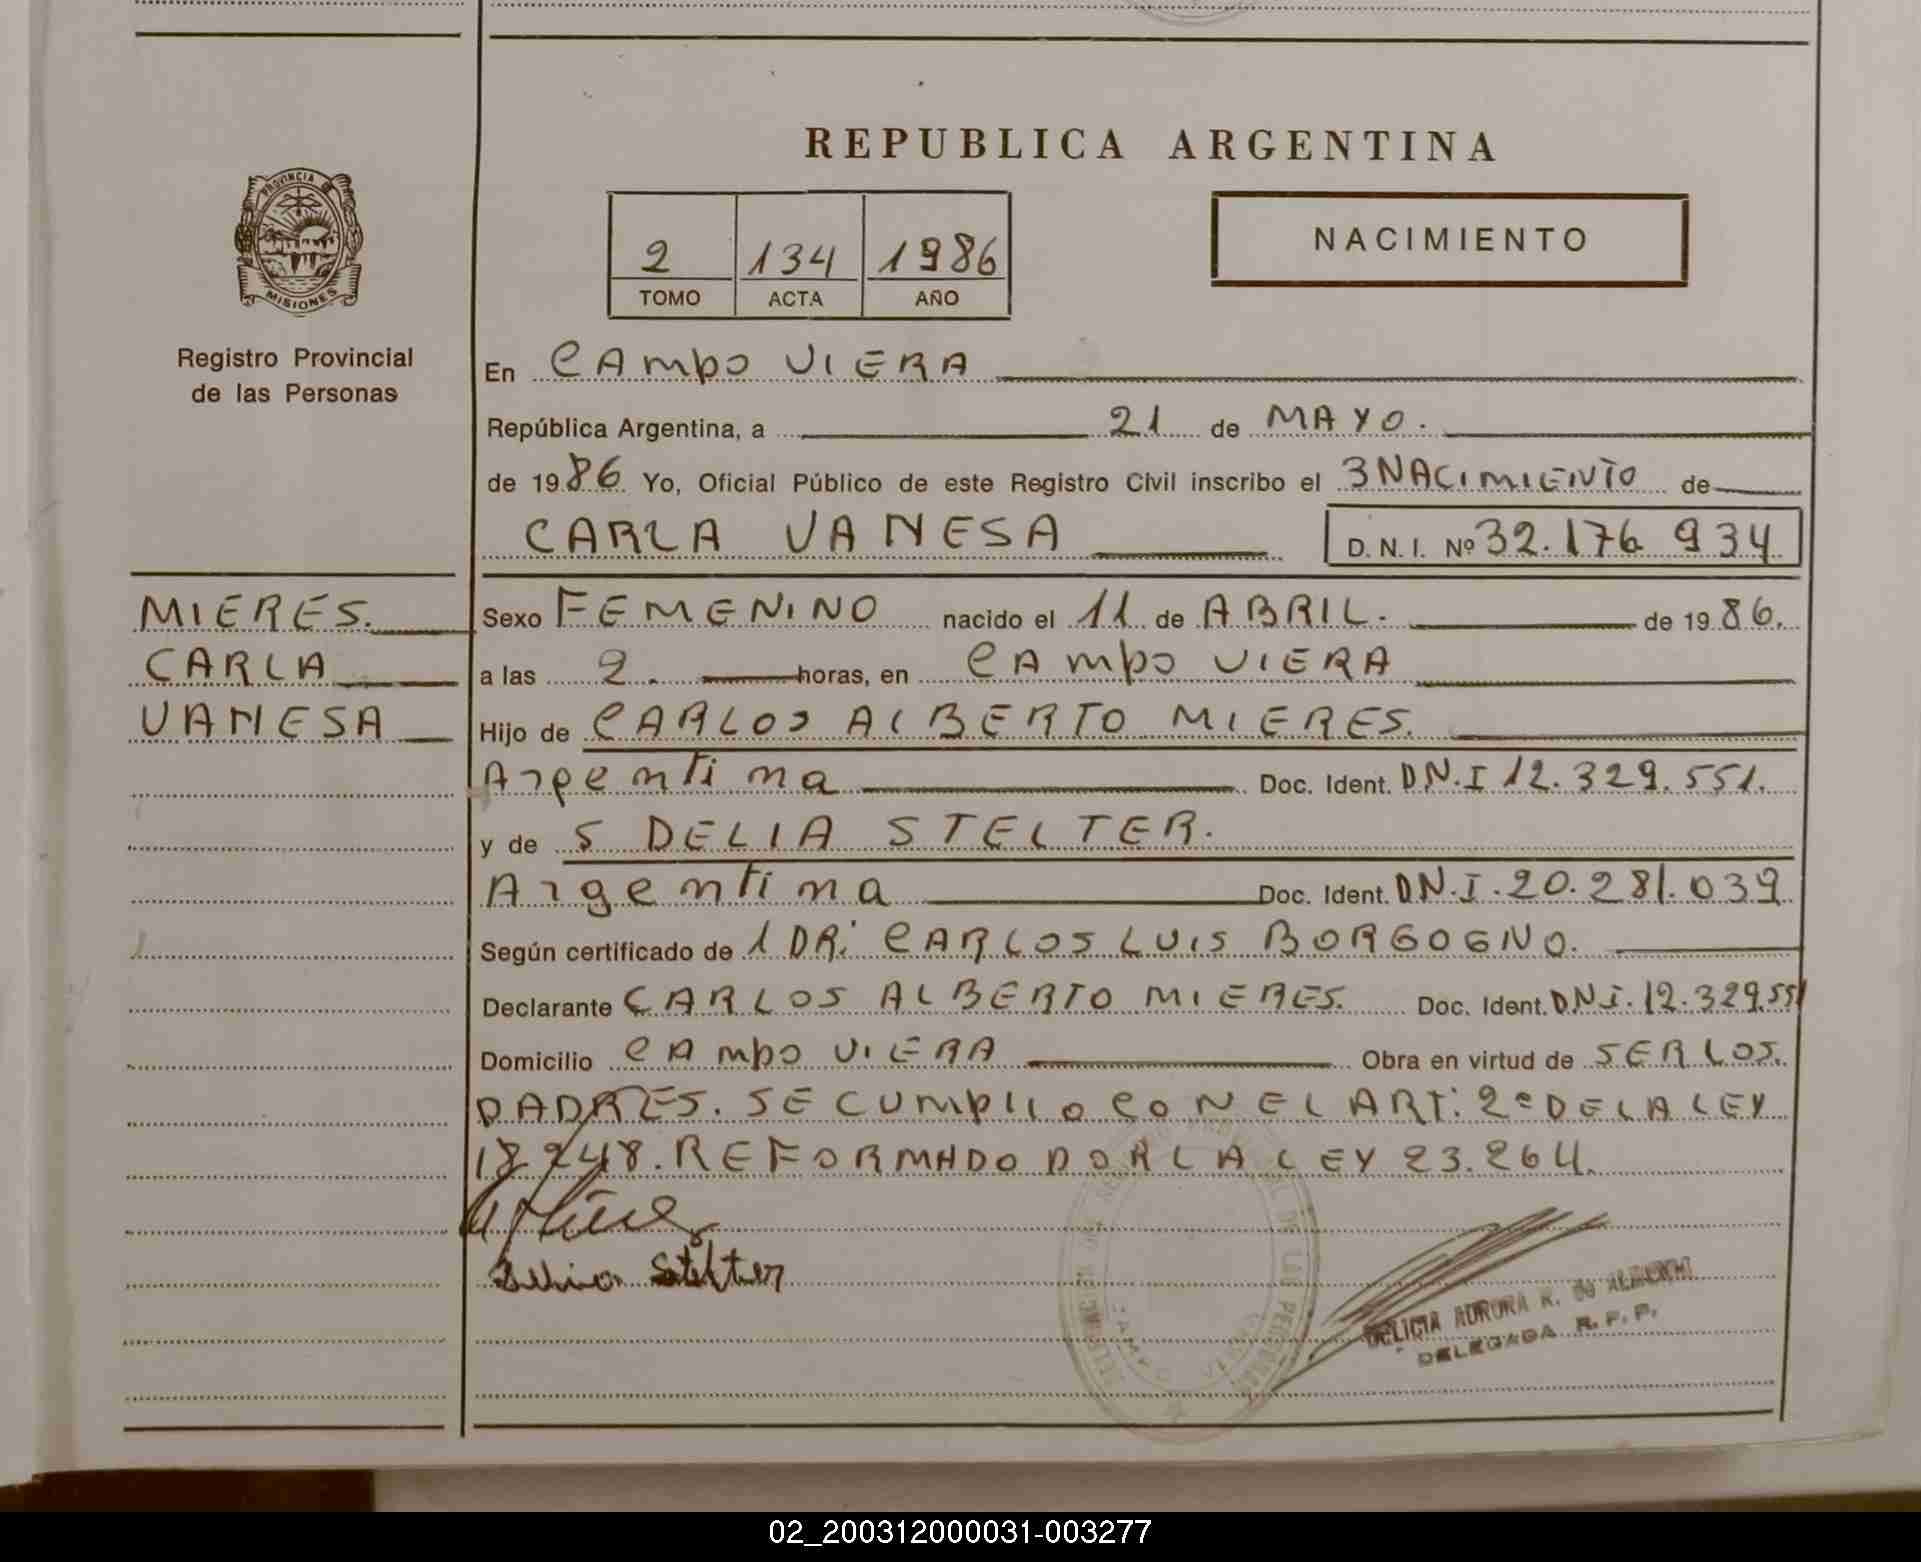 REPUBLICA ARGENTINA
PROVINCIA DE
MISIONES
Registro Provincial
de las Personas
2 134 1986
TOMO ACTA AÑO
NACIMIENTO
En CAMPO VIERA
República Argentina, a 21 de MAYO.
de 1986 Yo, Oficial Público de este Registro Civil inscribo el 3 NACIMIENTO de
CARLA VANESA D. N. I. Nº 32.176 934
MIERES.
CARLA
VANESA
Sexo FEMENINO nacido el 11 de ABRIL. de 1986.
a las 2. horas, en CAMPO VIERA
Hijo de CARLOS ALBERTO MIERES.
Argentina Doc. Ident. DN.I 12.329.551.
y de S DELIA STELTER.
Argentina Doc. Ident. DN.I.20.281.039
Según certificado de 1 DR: CARLOS LUIS BORGOGNO.
Declarante CARLOS ALBERTO MIERES. Doc. Ident. DNI.12.329.551
Domicilio CAMPO VIERA Obra en virtud de SER LOS.
PADRES. SE CUMPLIO CON EL ART: 2º DE LA LEY
18248. REFORMADO POR LA LEY 23.264.
Stelter
DELICIA AURORA R. de
DELEGADA R. P. P.
02_200312000031-003277